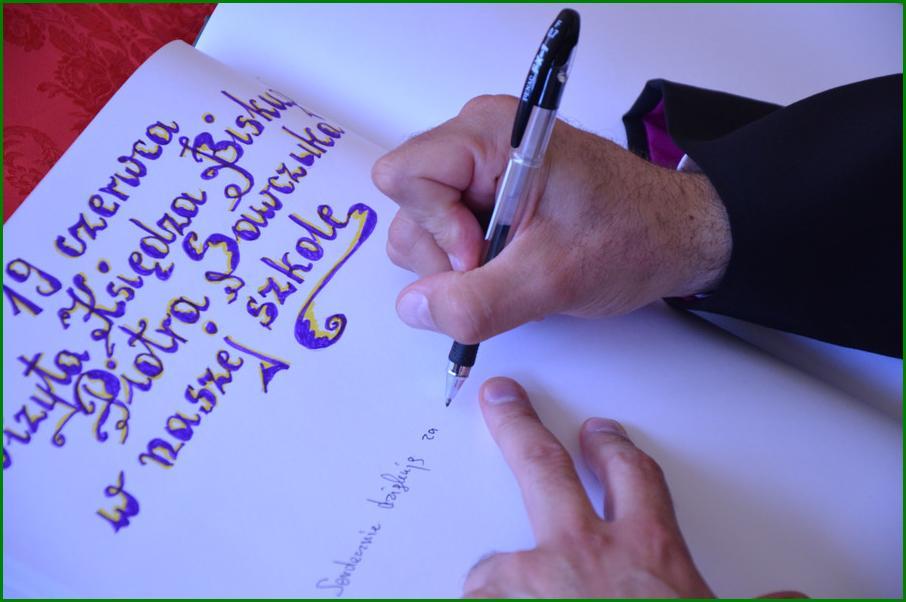 19 czerwca
wizyta Księdza Bisku
Piotra Sawczuka
w naszej szkole
Serdecznie dziękuję za